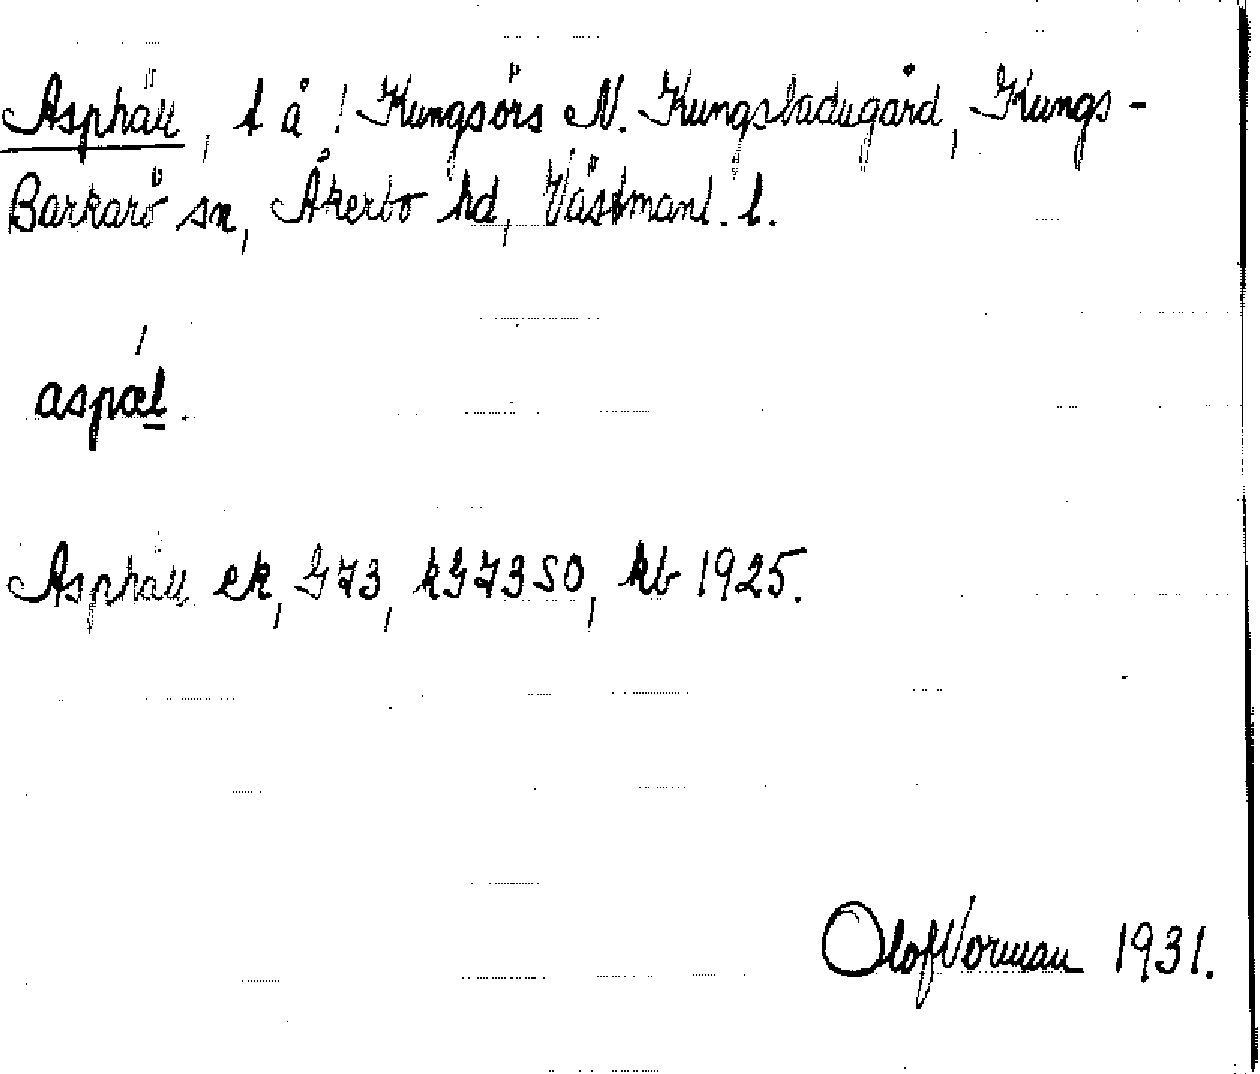 Asphäll, t å ! Kungsörs N. Kungsladugård, Kungs-
Barkarö sn, Åkerbo hd, Västmanl. l.
aspæl.
Asphäll ek, G73, kG73SO, kb 1925.
Olof Vorman 1931.